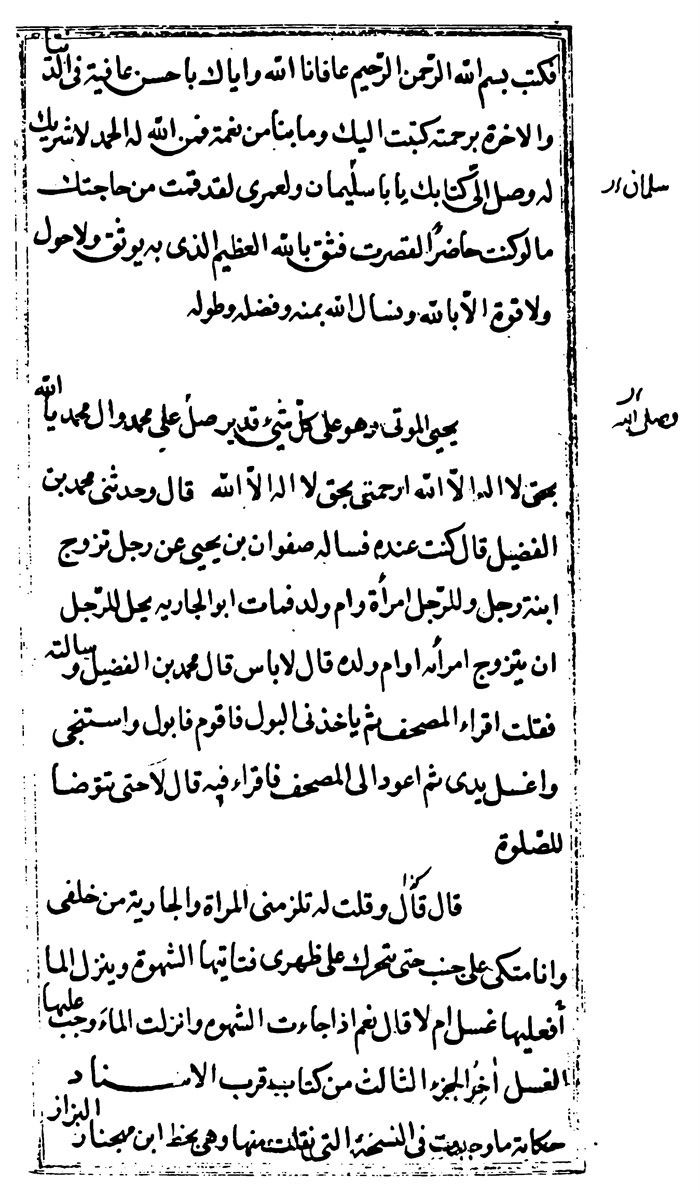 فكتب بسم الله الرّحمن الرّحيم عافانا الله واياك باحسن عافية فى الدّنيا
والاخرة برحمته كتبت اليك وما بنا من نعمة فمن الله له الحمد لا شريك
له وصل الىّ كتابك يا با سليمان ولعمرى لقد قمت من حاجتك
ما لو كنت حاضرًا لقصرت فثق بالله العظيم الذى به يوثق ولا حول
ولا قوة الاّ بالله ونسال الله بمنه وفضله وطوله
يحيى الموتى وهو على كلّ شئ قدير صل على محمد وال محمد يا الله
بحق لا اله الاّ الله ارحمنى بحق لا اله الاّ الله قال وحدثنى محمد بن
الفضيل قال كنت عنده فساله صفوان بن يحيى عن رجل تزوج
ابنة رجل وللرّجل امرأة وام ولد فمات ابو الجارية يحل للرّجل
ان يتزوج امرأته او ام ولده قال لا باس قال محمد بن الفضيل وسالته
فقلت اقراء المصحف ثم ياخذنى البول فاقوم فابول واستنجى
واغسل يدى ثم اعود الى المصحف فاقراء فيه قال لا حتى تتوّضا
للصّلوة
قال قال كذا وقلت له تلزمنى المراة والجارية من خلفى
وانا متكى على جنب حتى تتحرك على ظهرى فتاتيها الشهوة وينزل الما
أفعليها غسل ام لا قال نعم اذا جاءت الشهوه وانزلت الماء وجب عليها
الغسل اٰخر الجزء الثالث من كتاب قرب الاسناد
حكاية ما وجدت فى النسخة التى نقلت منها وهى بخط ابن مهجناز البزاز
سلمان ار
ار
وصلى الله